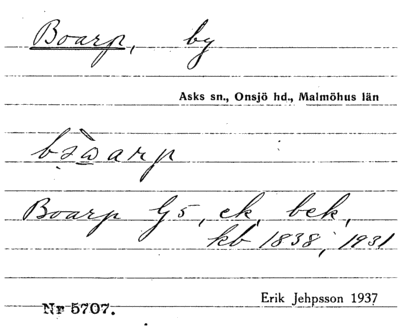 Boarp, by
Asks sn., Onsjö hd., Malmöhus län
Boarp G5, ek, bek,
kb 1838, 1931
Erik Jehpsson 1937
Nr 5707.